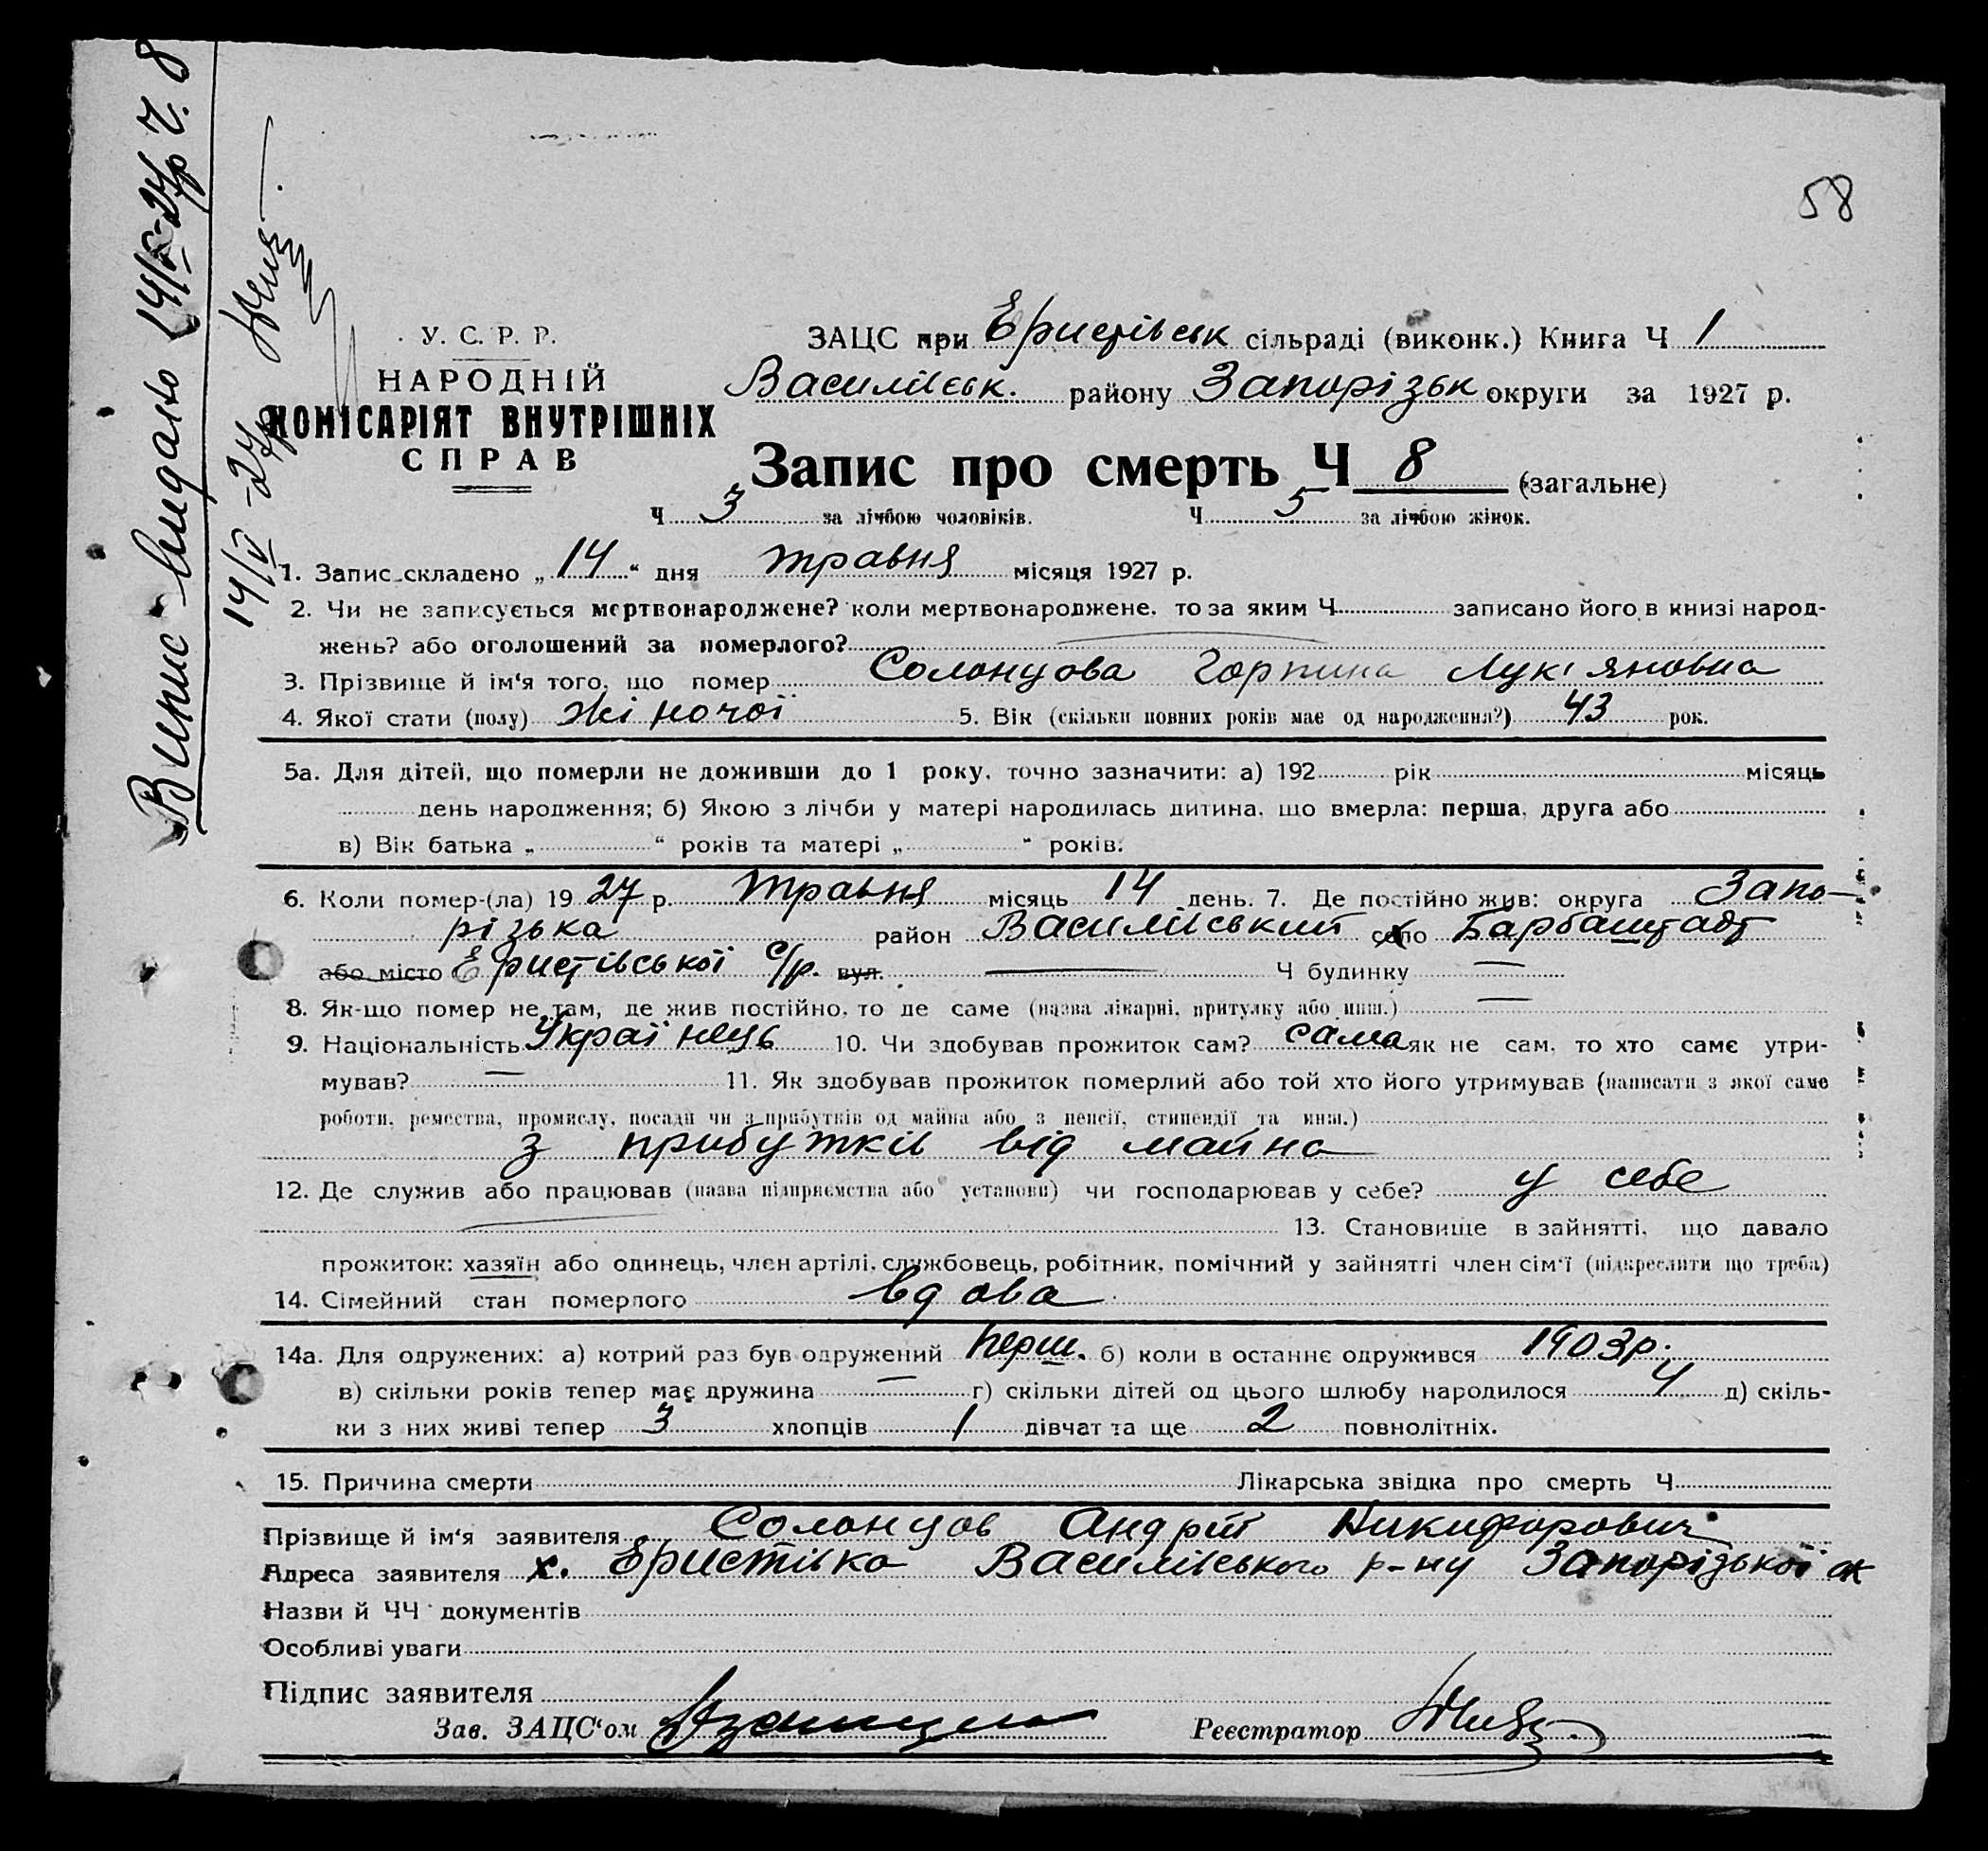 58
Випис видано 14/V-27р Ч. 8
14/V-27р
У. С. Р. Р.
НАРОДНІЙ
КОМІСАРІЯТ ВНУТРІШНІХ
СПРАВ
ЗАЦС при Еристівськ сільраді (виконк.) Книга Ч 1
Василівськ. району Запорізьк округи за 1927 р.
Запис про смерть Ч 8 (загальне)
Ч 3 за лічбою чоловіків. Ч 5 за лічбою жінок.
1. Запис складено „14“ дня травня місяця 1927 р.
2. Чи не записується мертвонароджене? коли мертвонароджене, то за яким Ч записано його в книзі народ-
жень? або оголошений за померлого?
3. Прізвище й ім‘я того, що помер Солонцова Горпина Лук‘яновна
4. Якої стати (полу) жіночої 5. Вік (скільки повних років має од народження?) 43 рок.
5а. Для дітей, що померли не доживши до 1 року, точно зазначити: а) 192 рік місяць
день народження; б) Якою з лічби у матері народилась дитина, що вмерла: перша, друга або
в) Вік батька „ “ років та матері „ “ років.
6. Коли помер-(ла) 1927 р. травня місяць 14 день. 7. Де постійно жив: округа Запо-
різька район Василівський село Барбаштадт
або місто Еристівської с/р. вул. — Ч будинку —
8. Як-що помер не там, де жив постійно, то де саме (назва лікарні, притулку або инш.) —
9. Національність Українець 10. Чи здобував прожиток сам? сама як не сам, то хто саме утри-
мував? — 11. Як здобував прожиток померлий або той хто його утримував (написати з якої саме
роботи, ремества, промислу, посади чи з прибутків од майна або з пенсії, стипендії та инш.)
з прибутків від майна
12. Де служив або працював (назва підприємства або установи) чи господарював у себе? у себе
13. Становище в зайнятті, що давало
прожиток: хазяїн або одинець, член артілі, службовець, робітник, помічний у зайнятті член сім‘ї (підкреслити що треба)
14. Сімейний стан померлого вдова
14а. Для одружених: а) котрий раз був одружений перш. б) коли в останнє одружився 1903р.
в) скільки років тепер має дружина — г) скільки дітей од цього шлюбу народилося 4 д) скіль-
ки з них живі тепер 3 хлопців 1 дівчат та ще 2 повнолітніх.
15. Причина смерти Лікарська звідка про смерть Ч
Прізвище й ім‘я заявителя Солонцов Андрій Никифорович
Адреса заявителя х. Еристівка Василівського р-ну Запорізької ок
Назви й ЧЧ документів
Особливі уваги
Підпис заявителя
Зав. ЗАЦС‘ом Реєстратор